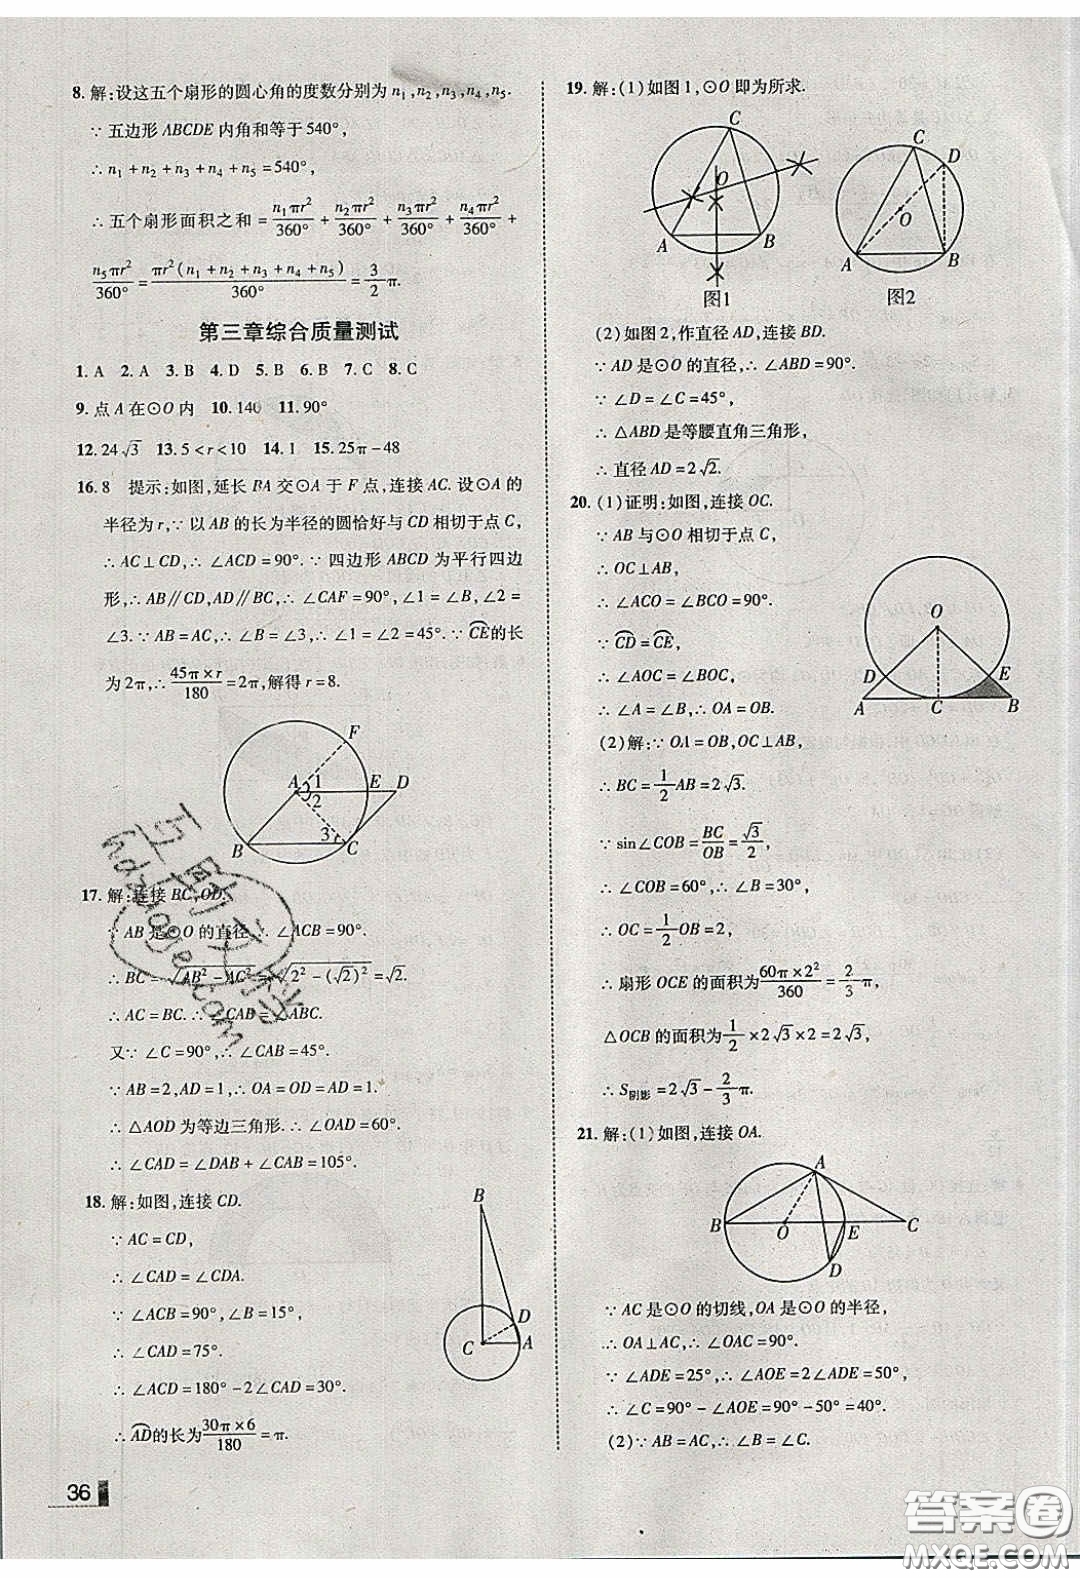 8. 解:设这五个扇形的圆心角的度数分别为 n₁,n₂,n₃,n₄,n₅.
∵ 五边形 ABCDE 内角和等于 540°,
∴ n₁+n₂+n₃+n₄+n₅=540°,
∴ 五个扇形面积之和 = n₁πr²/360° + n₂πr²/360° + n₃πr²/360° + n₄πr²/360° +
n₅πr²/360° = πr²(n₁+n₂+n₃+n₄+n₅)/360° = 3/2 π.
第三章综合质量测试
1. A 2. A 3. B 4. D 5. B 6. B 7. C 8. C
9. 点 A 在⊙O 内 10. 140 11. 90°
12. 24√3 13. 5<r<10 14. 1 15. 25π-48
16. 8 提示:如图,延长 BA 交⊙A 于 F 点,连接 AC. 设⊙A 的
半径为 r,∵ 以 AB 的长为半径的圆恰好与 CD 相切于点 C,
∴ AC⊥CD,∴ ∠ACD=90°. ∵ 四边形 ABCD 为平行四边
形,∴ AB∥CD,AD∥BC,∴ ∠CAF=90°,∠1=∠B,∠2=
∠3. ∵ AB=AC,∴ ∠B=∠3,∴ ∠1=∠2=45°. ∵ C͡E的长
为 2π,∴ 45π×r/180=2π,解得 r=8.
F
A 1 E D
2
3 r
B C
17. 解:连接 BC,OD.
∵ AB 是⊙O 的直径,∴ ∠ACB=90°.
∴ BC=√(AB²-AC²)=√(2²-(√2)²)=√2.
∴ AC=BC. ∴ ∠CAB=∠ABC.
又∵ ∠C=90°,∴ ∠CAB=45°.
∵ AB=2,AD=1,∴ OA=OD=AD=1.
∴ △AOD 为等边三角形. ∴ ∠OAD=60°.
∴ ∠CAD=∠DAB+∠CAB=105°.
18. 解:如图,连接 CD.
∵ AC=CD,
∴ ∠CAD=∠CDA.
∵ ∠ACB=90°,∠B=15°,
∴ ∠CAD=75°.
∴ ∠ACD=180°-2∠CAD=30°.
∴ A͡D的长为 30π×6/180=π.
B
D
C A
36
19. 解:(1)如图 1,⊙O 即为所求.
C
O
A B
图1
C
D
O
A B
图2
(2)如图 2,作直径 AD,连接 BD.
∵ AD 是⊙O 的直径,∴ ∠ABD=90°.
∵ ∠D=∠C=45°,
∴ △ABD 是等腰直角三角形,
∴ 直径 AD=2√2.
20. (1)证明:如图,连接 OC.
∵ AB 与⊙O 相切于点 C,
∴ OC⊥AB,
∴ ∠ACO=∠BCO=90°.
∵ C͡D=C͡E,
∴ ∠AOC=∠BOC,
∴ ∠A=∠B,∴ OA=OB.
O
D E
A C B
(2)解:∵ OA=OB,OC⊥AB,
∴ BC=1/2 AB=2√3.
∵ sin∠COB=BC/OB=√3/2,
∴ ∠COB=60°,∴ ∠B=30°,
∴ OC=1/2 OB=2,
∴ 扇形 OCE 的面积为 60π×2²/360=2/3 π,
△OCB 的面积为 1/2×2√3×2=2√3,
∴ S阴影=2√3-2/3 π.
21. 解:(1)如图,连接 OA.
A
B O E C
D
∵ AC 是⊙O 的切线,OA 是⊙O 的半径,
∴ OA⊥AC,∴ ∠OAC=90°.
∵ ∠ADE=25°,∴ ∠AOE=2∠ADE=50°,
∴ ∠C=90°-∠AOE=90°-50°=40°.
(2)∵ AB=AC,∴ ∠B=∠C.
答案圈
MXQE.COM